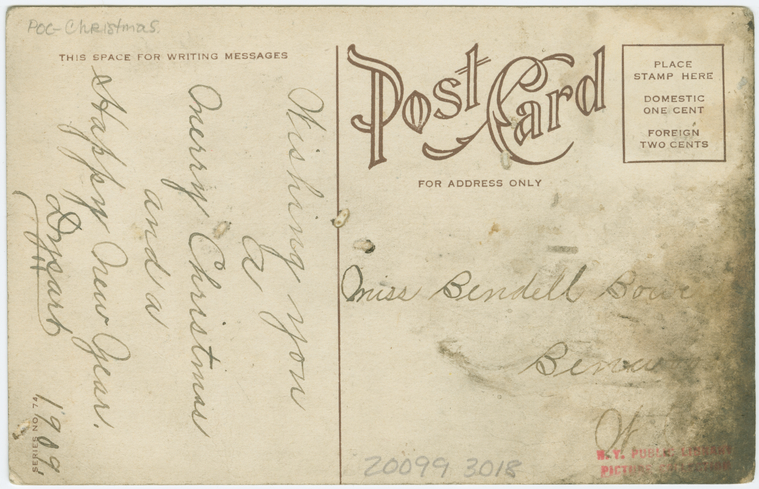 POC-Christmas.
THIS SPACE FOR WRITING MESSAGES
Wishing you
a
Merry Christmas
and a
Happy New Year.
Dysart
1909
SERIES NO.
Post Card
FOR ADDRESS ONLY
PLACE
STAMP HERE
DOMESTIC
ONE CENT
FOREIGN
TWO CENTS
Miss Bendell
20099 3018
N.Y. PUBLIC LIBRARY
PICTURE COLLECTION